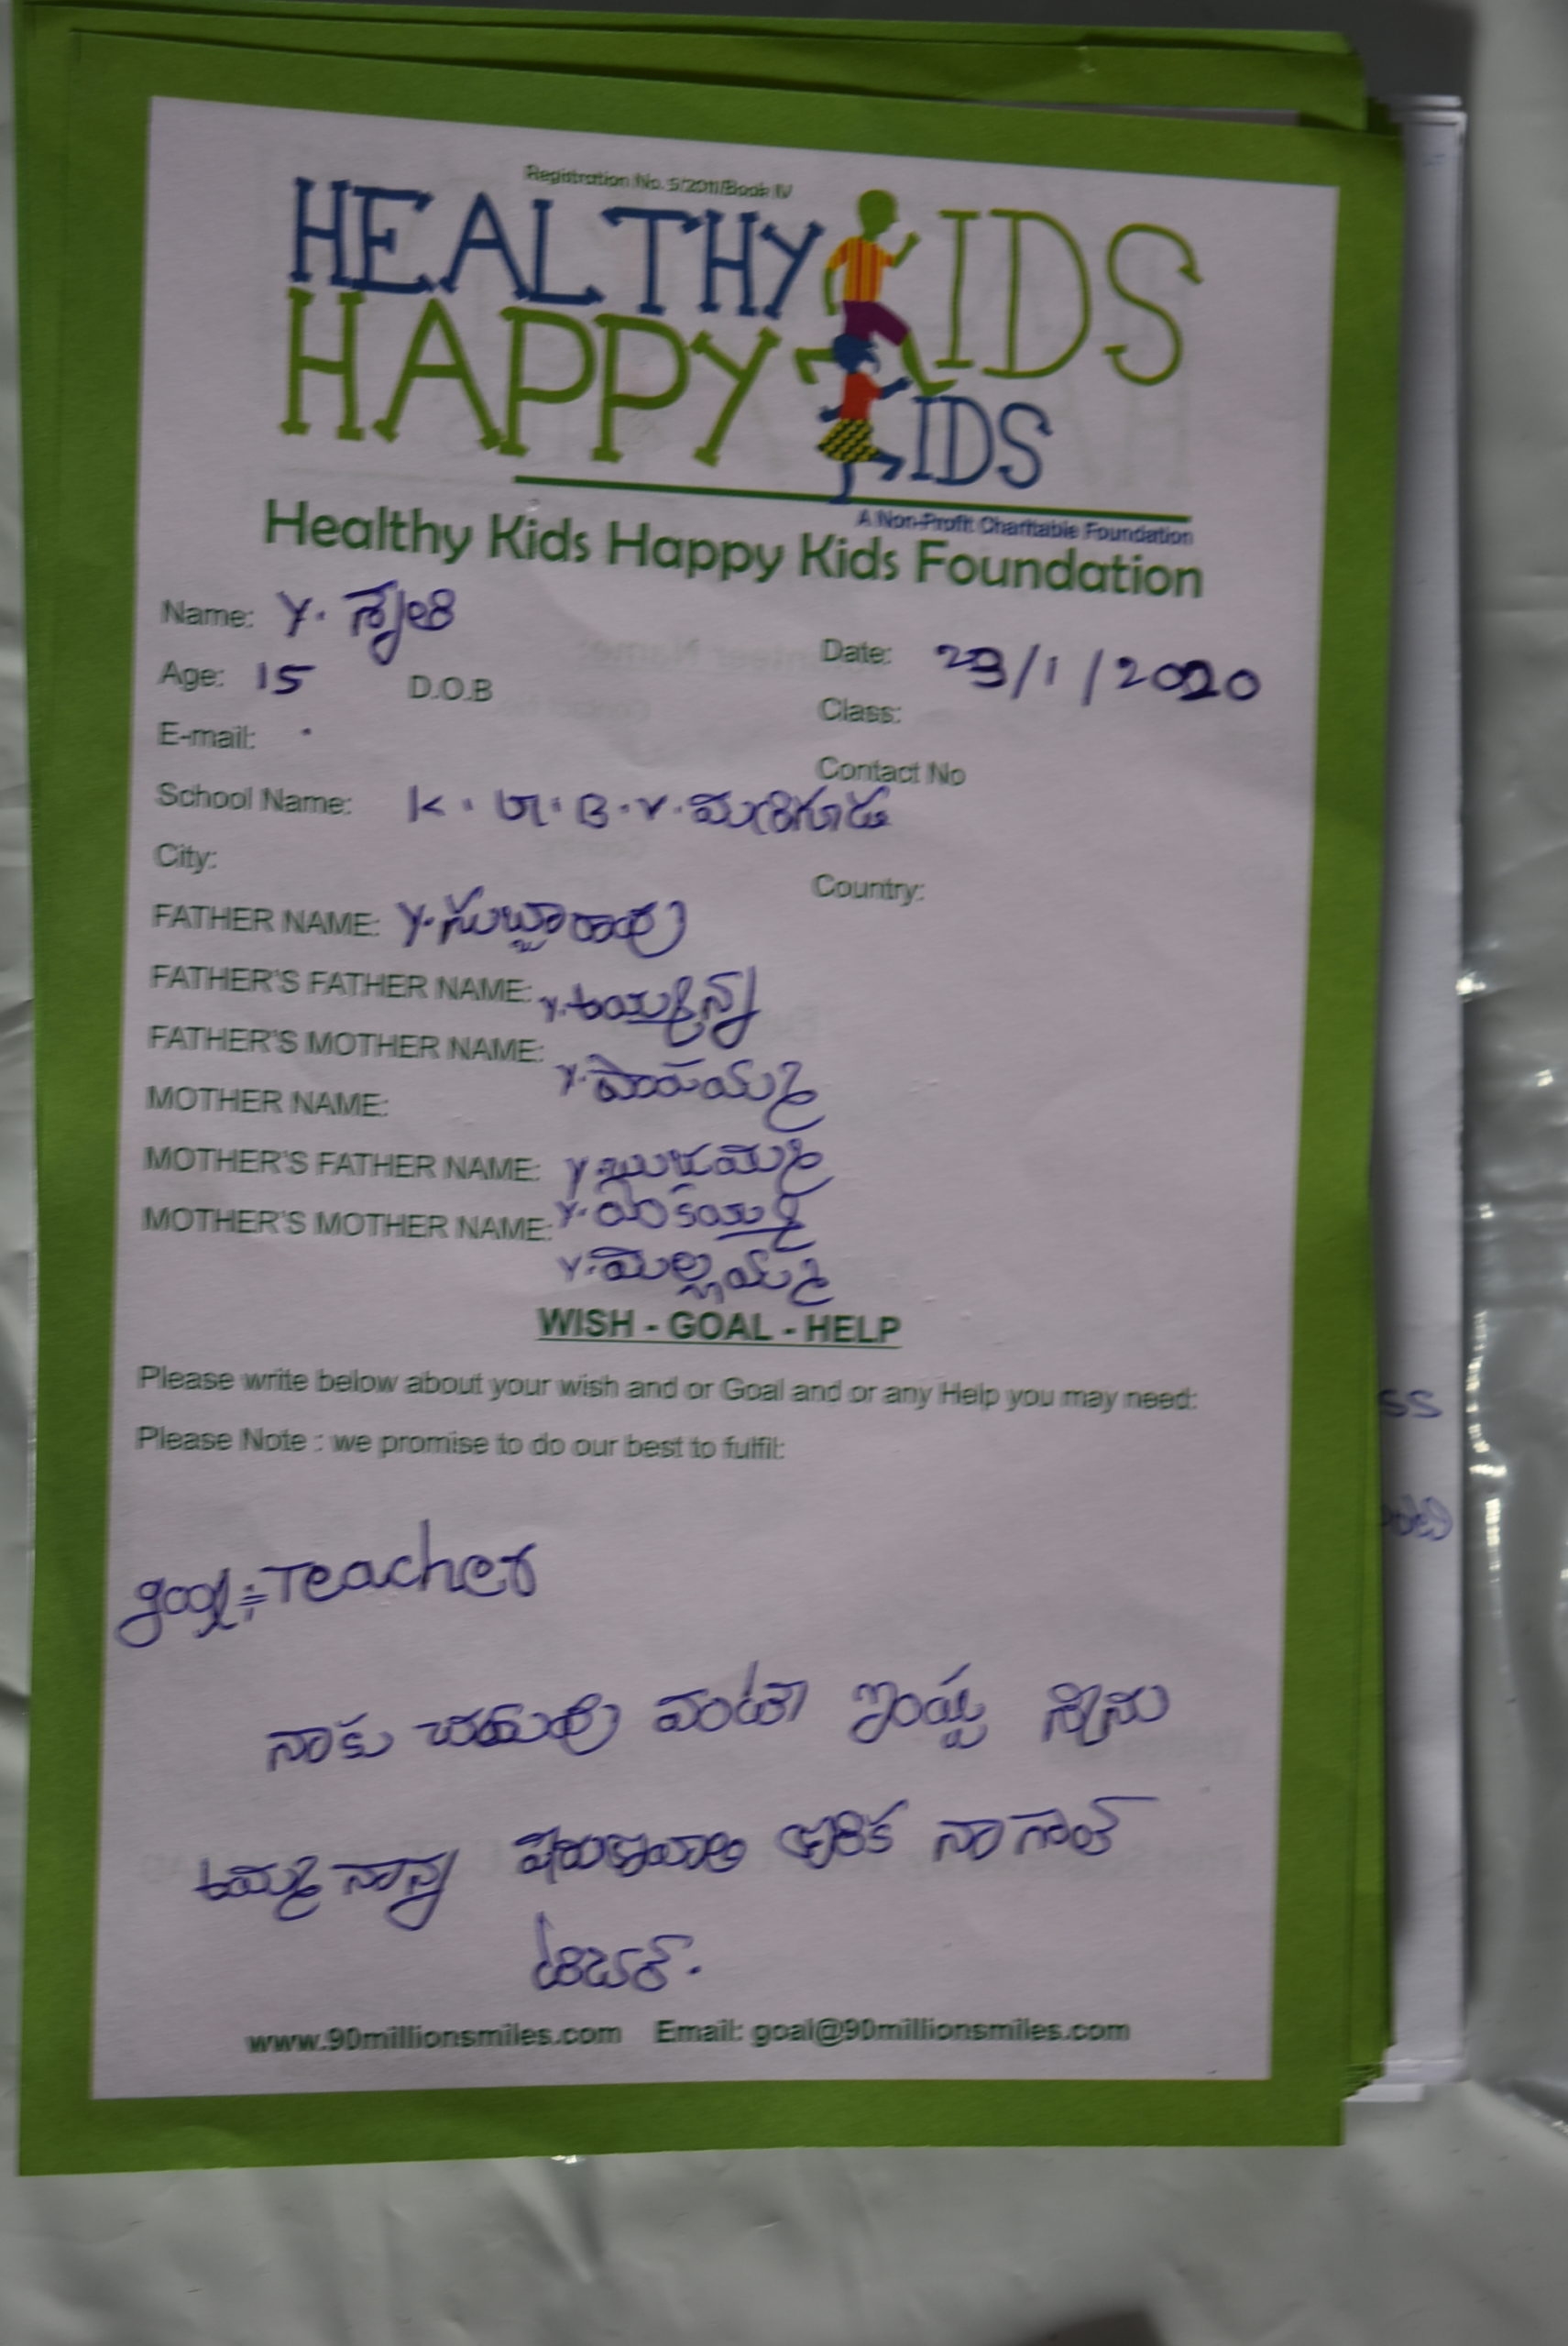 Registration No. 5/2011/Book IV
HEALTHY KIDS
HAPPY KIDS
A Non-Profit Charitable Foundation
Healthy Kids Happy Kids Foundation
Name: Y.
Date: 23/1/2020
Age: 15 D.O.B
Class:
E-mail:
Contact No
School Name: K.G.B.V.
City:
Country:
FATHER NAME: Y. సుబ్బారావు
FATHER'S FATHER NAME: Y.
FATHER'S MOTHER NAME: Y. పాపమ్మ
MOTHER NAME:
MOTHER'S FATHER NAME: Y.
MOTHER'S MOTHER NAME: Y.
Y. మల్లమ్మ
WISH - GOAL - HELP
Please write below about your wish and or Goal and or any Help you may need:
Please Note : we promise to do our best to fulfil:
goal := Teacher
నాకు చదువు వంటే ఇంష్ట
అమ్మ నాన్న కోరిక నా గోల్
టీచర్.
www.90millionsmiles.com Email: goal@90millionsmiles.com